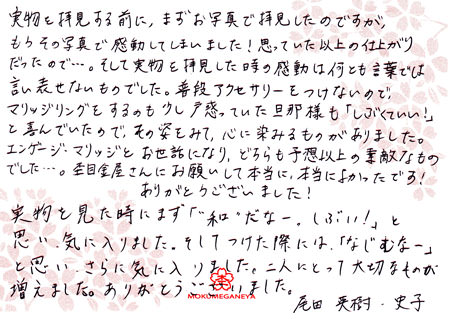 実物を拝見する前に、まずお写真で拝見したのですが、
もうその写真で感動してしまいました!思っていた以上の仕上がり
だったので…。そして実物を拝見した時の感動は何とも言葉では
言い表せないものでした。普段アクセサリーをつけないので、
マリッジリングをするのも少し戸惑っていた旦那様も「しぶくていい!」
と喜んでいたので、その姿をみて、心に染みるものがありました。
エンゲージ・マリッジとお世話になり、どちらも予想以上の素敵なもの
でした…。杢目金屋さんにお願いして本当に、本当によかったです!
ありがとうございました!
実物を見た時にまず「"和"だなー。しぶい!」と
思い、気に入りました。そしてつけた際には、「なじむなー」
と思い、さらに気に入りました。二人にとって大切なものが
増えました。ありがとうございました。
MOKUMEGANEYA
尾田 英樹・史子